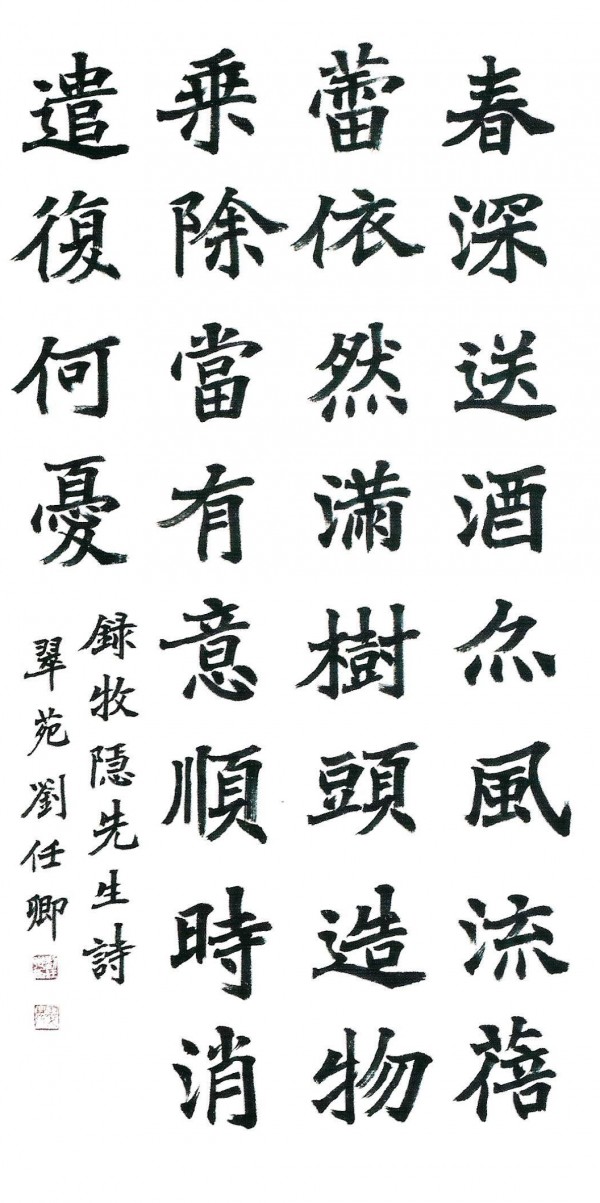 春深送酒亦風流蓓
蕾依然滿樹頭造物
乘除當有意順時消
遣復何憂
録牧隐先生詩
翠苑劉任卿